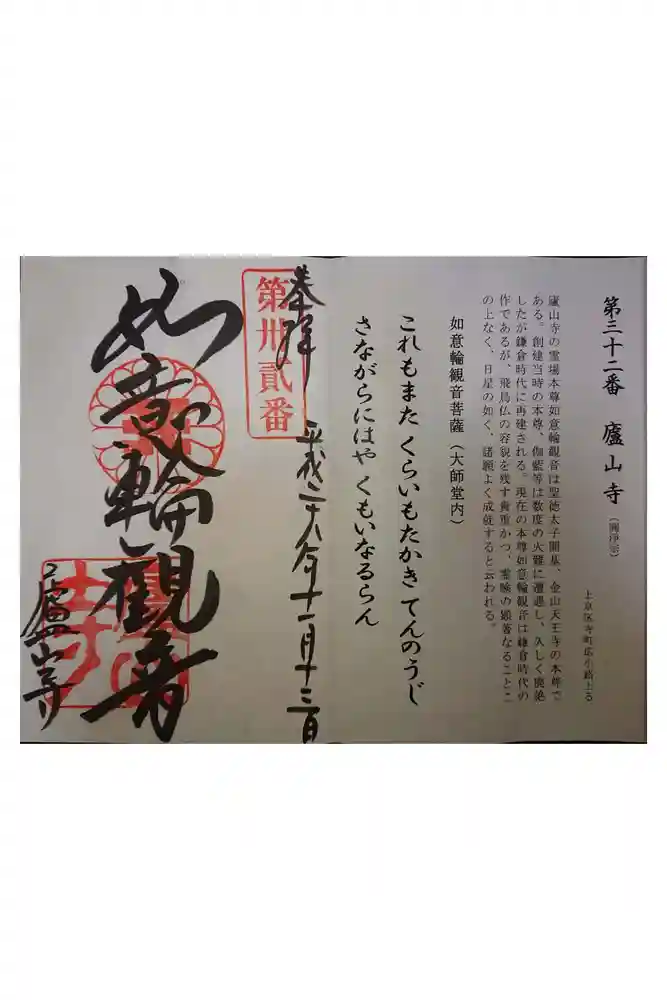 第三十二番　廬山寺（圓浄宗）
上京区寺町広小路上る
廬山寺の霊場本尊如意輪観音は聖徳太子開基、金山天王寺の本尊で
ある。創建当時の本尊、伽藍等は数度の火難に遭遇し、久しく廃絶
したが鎌倉時代に再建される。現在の本尊如意輪観音は鎌倉時代の
作であるが、飛鳥仏の容貌を残す貴重かつ、霊験の顕著なることこ
の上なく、日星の如く、諸願よく成就すると云われる。
如意輪観音菩薩（大師堂内）
これもまた くらいもたかき てんのうじ
さながらにはや くもいなるらん
奉拝　平成二十六年十一月十三日
第卅貳番
如意輪観音
廬山寺